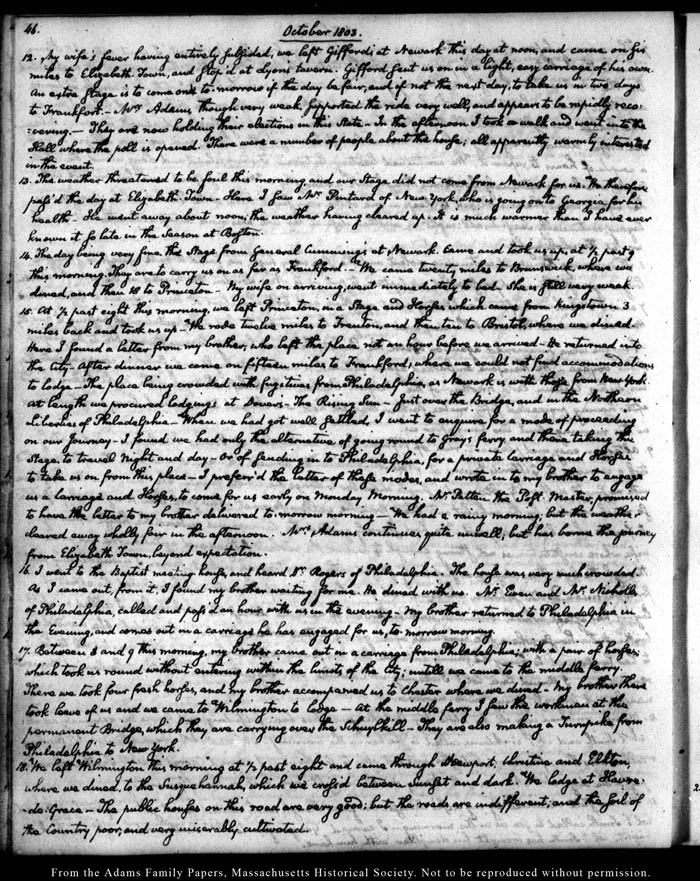 46.
October 1803.
12. My wife's fever having entirely subsided, we left Gifford's at Newark this day at noon, and came on six
miles to Elizabeth Town, and stop'd at Lyon's tavern. Gifford sent us on in a light, easy carriage of his own.
An extra stage is to come on to-morrow if the day be fair, and if not the next day, to take us in two days
to Frankfort. — Mrs. Adams though very weak supported the ride very well, and appears to be rapidly reco-
:vering. — They are now holding their elections in this State — In the afternoon I took a walk and went into the
Hall where the poll is opened. There were a number of people about the house; all apparently warmly interested
in the event.
13. The weather threatened to be foul this morning, and our Stage did not come from Newark for us. We therefore
pass'd the day at Elizabeth Town — Here I saw Mr. Pintard of New York, who is going on to Georgia for his
health — He went away about noon; the weather having cleared up. It is much warmer than I have ever
known it so late in the Season at Boston.
14. The day being very fine the Stage from General Cumming's at Newark came and took us up, at ½ past 9
this morning. They are to carry us on as far as Frankford. — We came twenty miles to Brunswick, where we
dined, and then 18 to Princeton — My wife on arriving, went immediately to bed. She is still very weak.
15. At ½ past eight this morning, we left Princeton, in a Stage and Horses which came from Kingstown 3
miles back and took us up — We rode twelve miles to Trenton, and then ten to Bristol, where we dined.
Here I found a letter from my brother, who left the place not an hour before we arrived — He returned into
the City — After dinner we came on fifteen miles to Frankford, where we could not find accommodations
to lodge — The place being crowded with fugitives from Philadelphia, as Newark is with those from New York.
At length we procured lodgings at Dover's — The Rising Sun — Just over the Bridge, and in the Northern
Liberties of Philadelphia — When we had got well settled, I went to enquire for a mode of proceeding
on our Journey — I found we had only the alternative of going round to Gray's ferry and there taking the
Stage, to travel Night and day — Or of sending in to Philadelphia, for a private Carriage and Horses
to take us on from this place — I preferr'd the latter of these modes, and wrote in to my brother to engage
us a Carriage and Horses, to come for us early on Monday Morning. Mr. Patten the Post Master, promised
to have the letter to my brother delivered to-morrow morning — We had a rainy morning, but the weather
cleared away wholly fair in the afternoon. Mrs. Adams continues quite unwell, but has borne the journey
from Elizabeth Town, beyond expectation.
16. I went to the Baptist meeting house, and heard Dr. Rogers of Philadelphia. The house was very much crowded.
As I came out, from it, I found my brother waiting for me. He dined with us. Mr. Ewen and Mr. Nicholls
of Philadelphia, called and pass'd an hour with us in the evening — My brother returned to Philadelphia in
the Evening, and comes out in a carriage he has engaged for us, to-morrow morning.
17. Between 8 and 9 this morning, my brother came out in a carriage from Philadelphia; with a pair of horses;
which took us round without entering within the limits of the City; untill we came to the middle ferry.
There we took four fresh horses, and my brother accompanied us to Chester where we dined — My brother there
took leave of us and we came to Wilmington to lodge — At the middle ferry I saw the workmen at the
permanent Bridge, which they are carrying over the Schuylkill — They are also making a Turnpike from
Philadelphia to New York.
18. We left Wilmington this morning at ½ past eight and came through Newport, Christine and Elkton,
where we dined, to the Susquehannah, which we cross'd between sunset and dark. We lodge at Havre-
-de-Grace — The public houses on this road are very good; but the roads are indifferent; and the soil of
the Country poor, and very miserably cultivated.
From the Adams Family Papers, Massachusetts Historical Society. Not to be reproduced without permission.